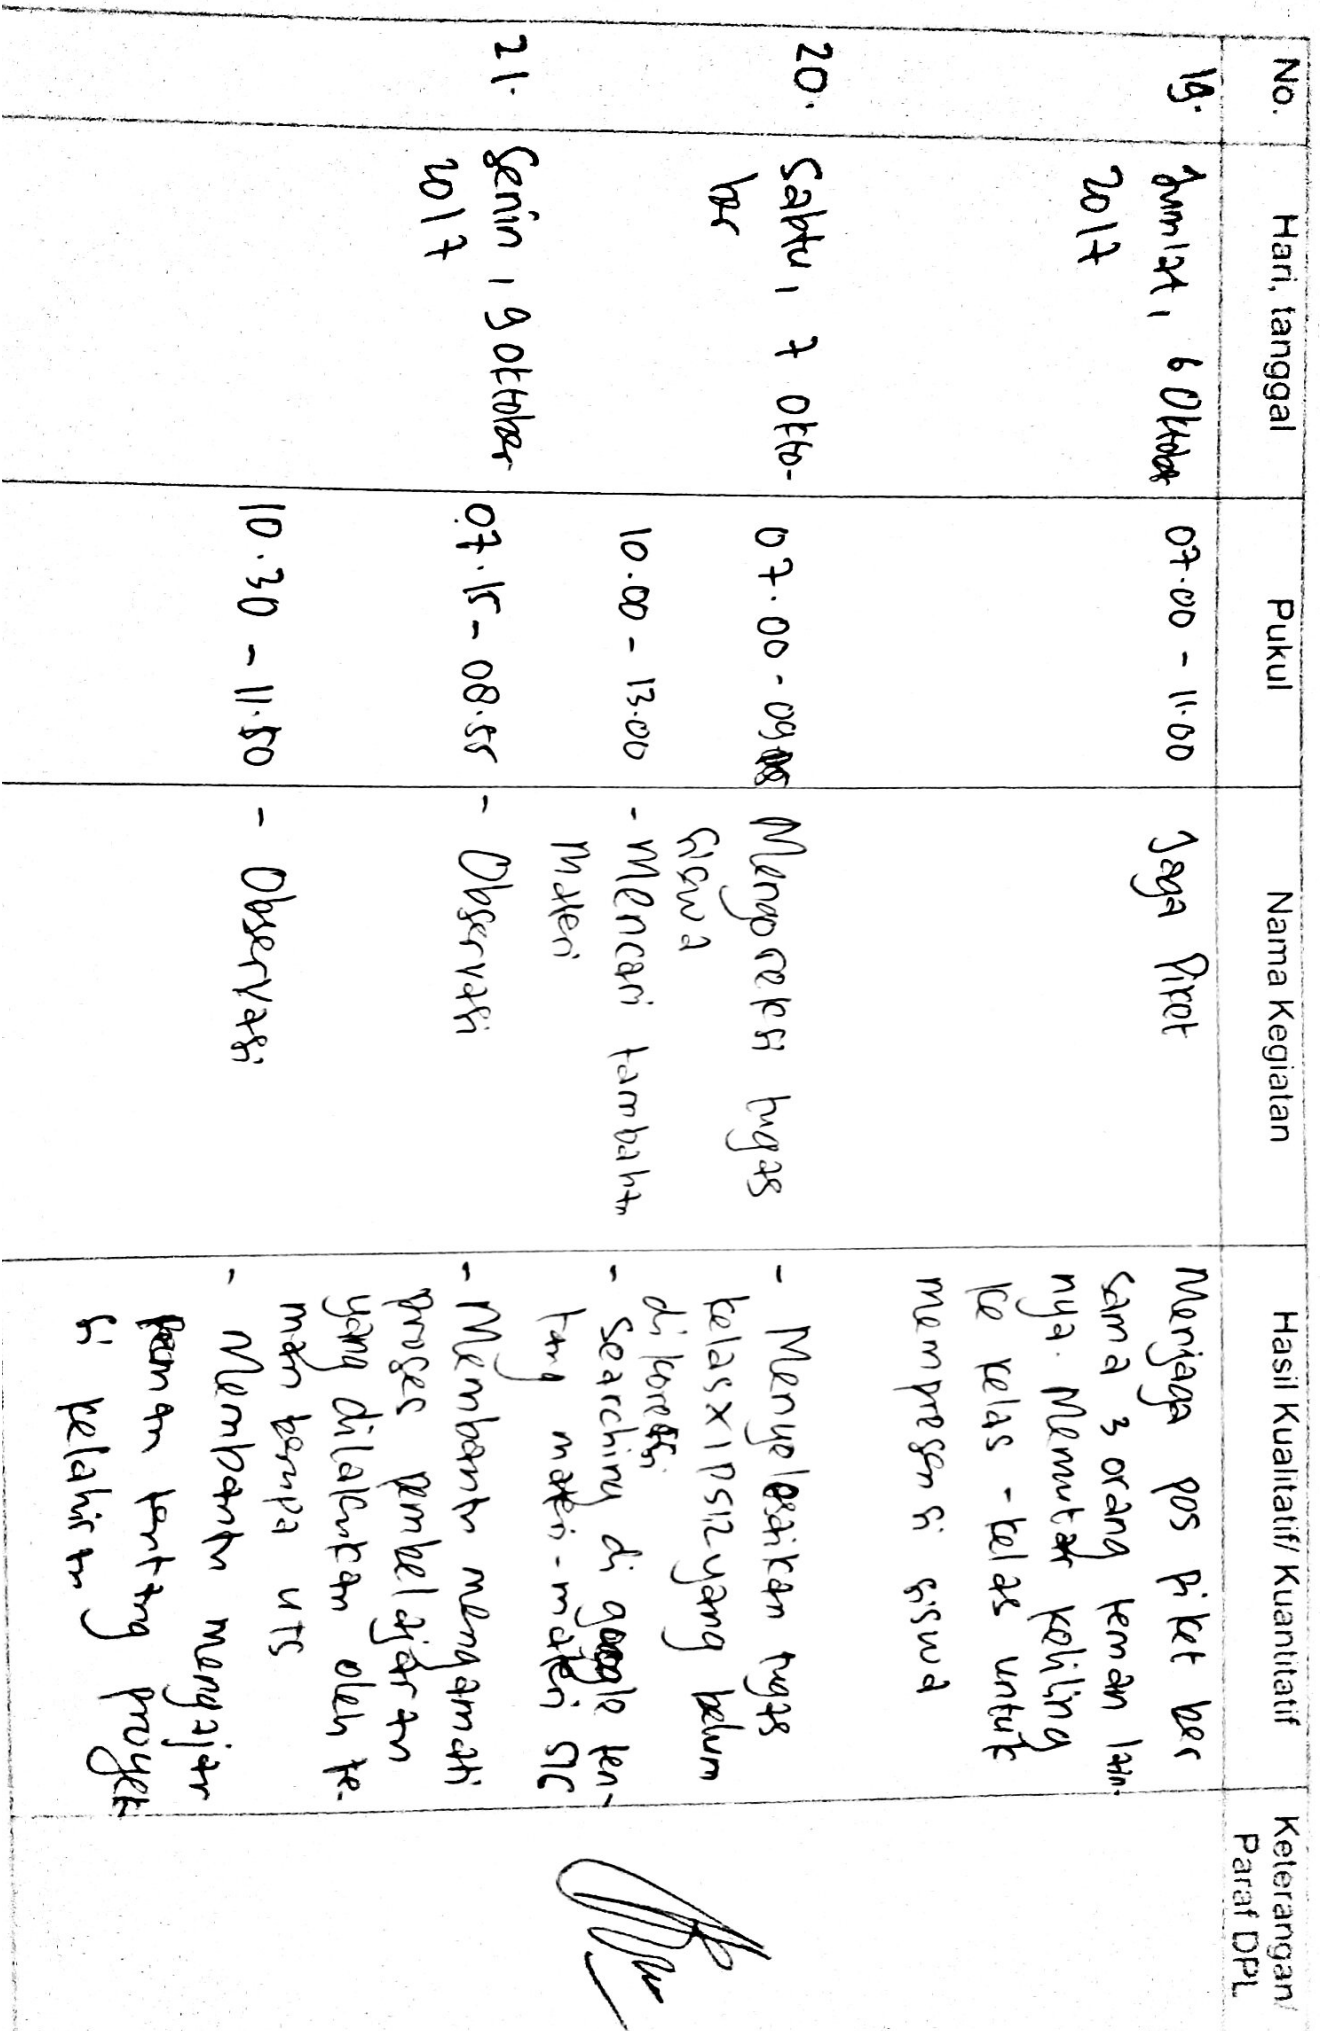 No. Hari, tanggal Pukul Nama Kegiatan Hasil Kualitatif/ Kuantitatif Keterangan/
Paraf DPL
19. Jum'at, 6 Oktober 07.00 - 11.00 Jaga Piket Menjaga pos piket ber
2017 sama 3 orang teman lain
nya. Memutar keliling
ke kelas - kelas untuk
mempresensi siswa
20. Sabtu, 7 Okto- 07.00 - Mengoreksi tugas - Menyelesaikan tugas
ber siswa kelas X IPS 12 yang belum
dikoreksi
10.00 - 13.00 - Mencari tambahan - Searching di google ten-
Materi tang materi - materi
21. Senin, 9 Oktober 07.15 - 08.55 - Observasi - Membantu mengamati
2017 proses pembelajaran
yang dilakukan oleh te-
man berupa UTS
10.30 - 11.50 - Observasi - Membantu mengajar
teman tentang proyek
si kelahiran